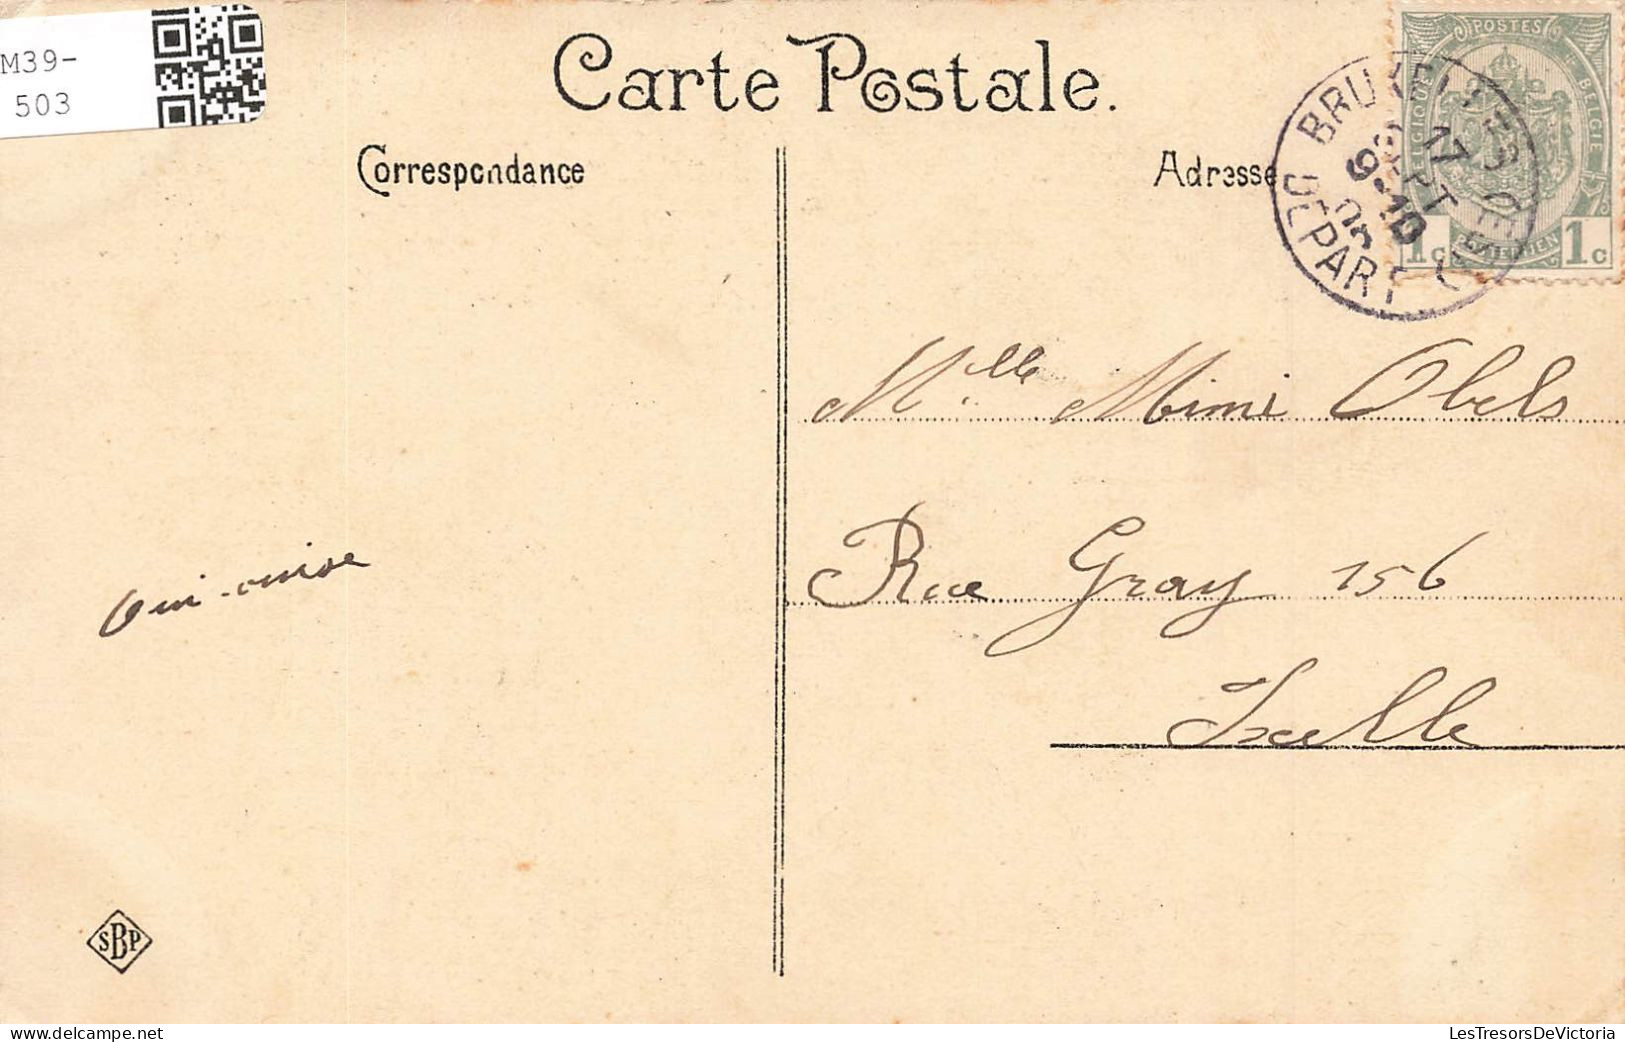 M39-
503
Carte Postale.
Correspondance
Adresse
POSTES
BELGIQUE
BELGIE
1c 1c
BRUXELLES
17
SEPT
9-10
DEPART
Mlle Mimi Obels
Rue Gray 156
Ixelle
SBP
delcampe.net
LesTresorsDeVictoria